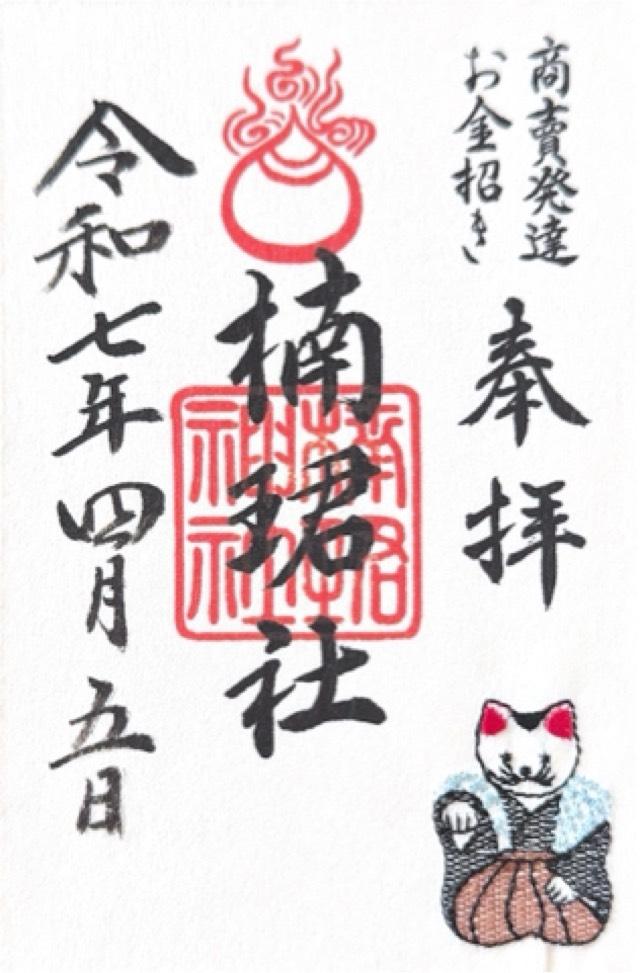 商賣発達
お金招き
奉拝
楠珺社
令和七年四月五日